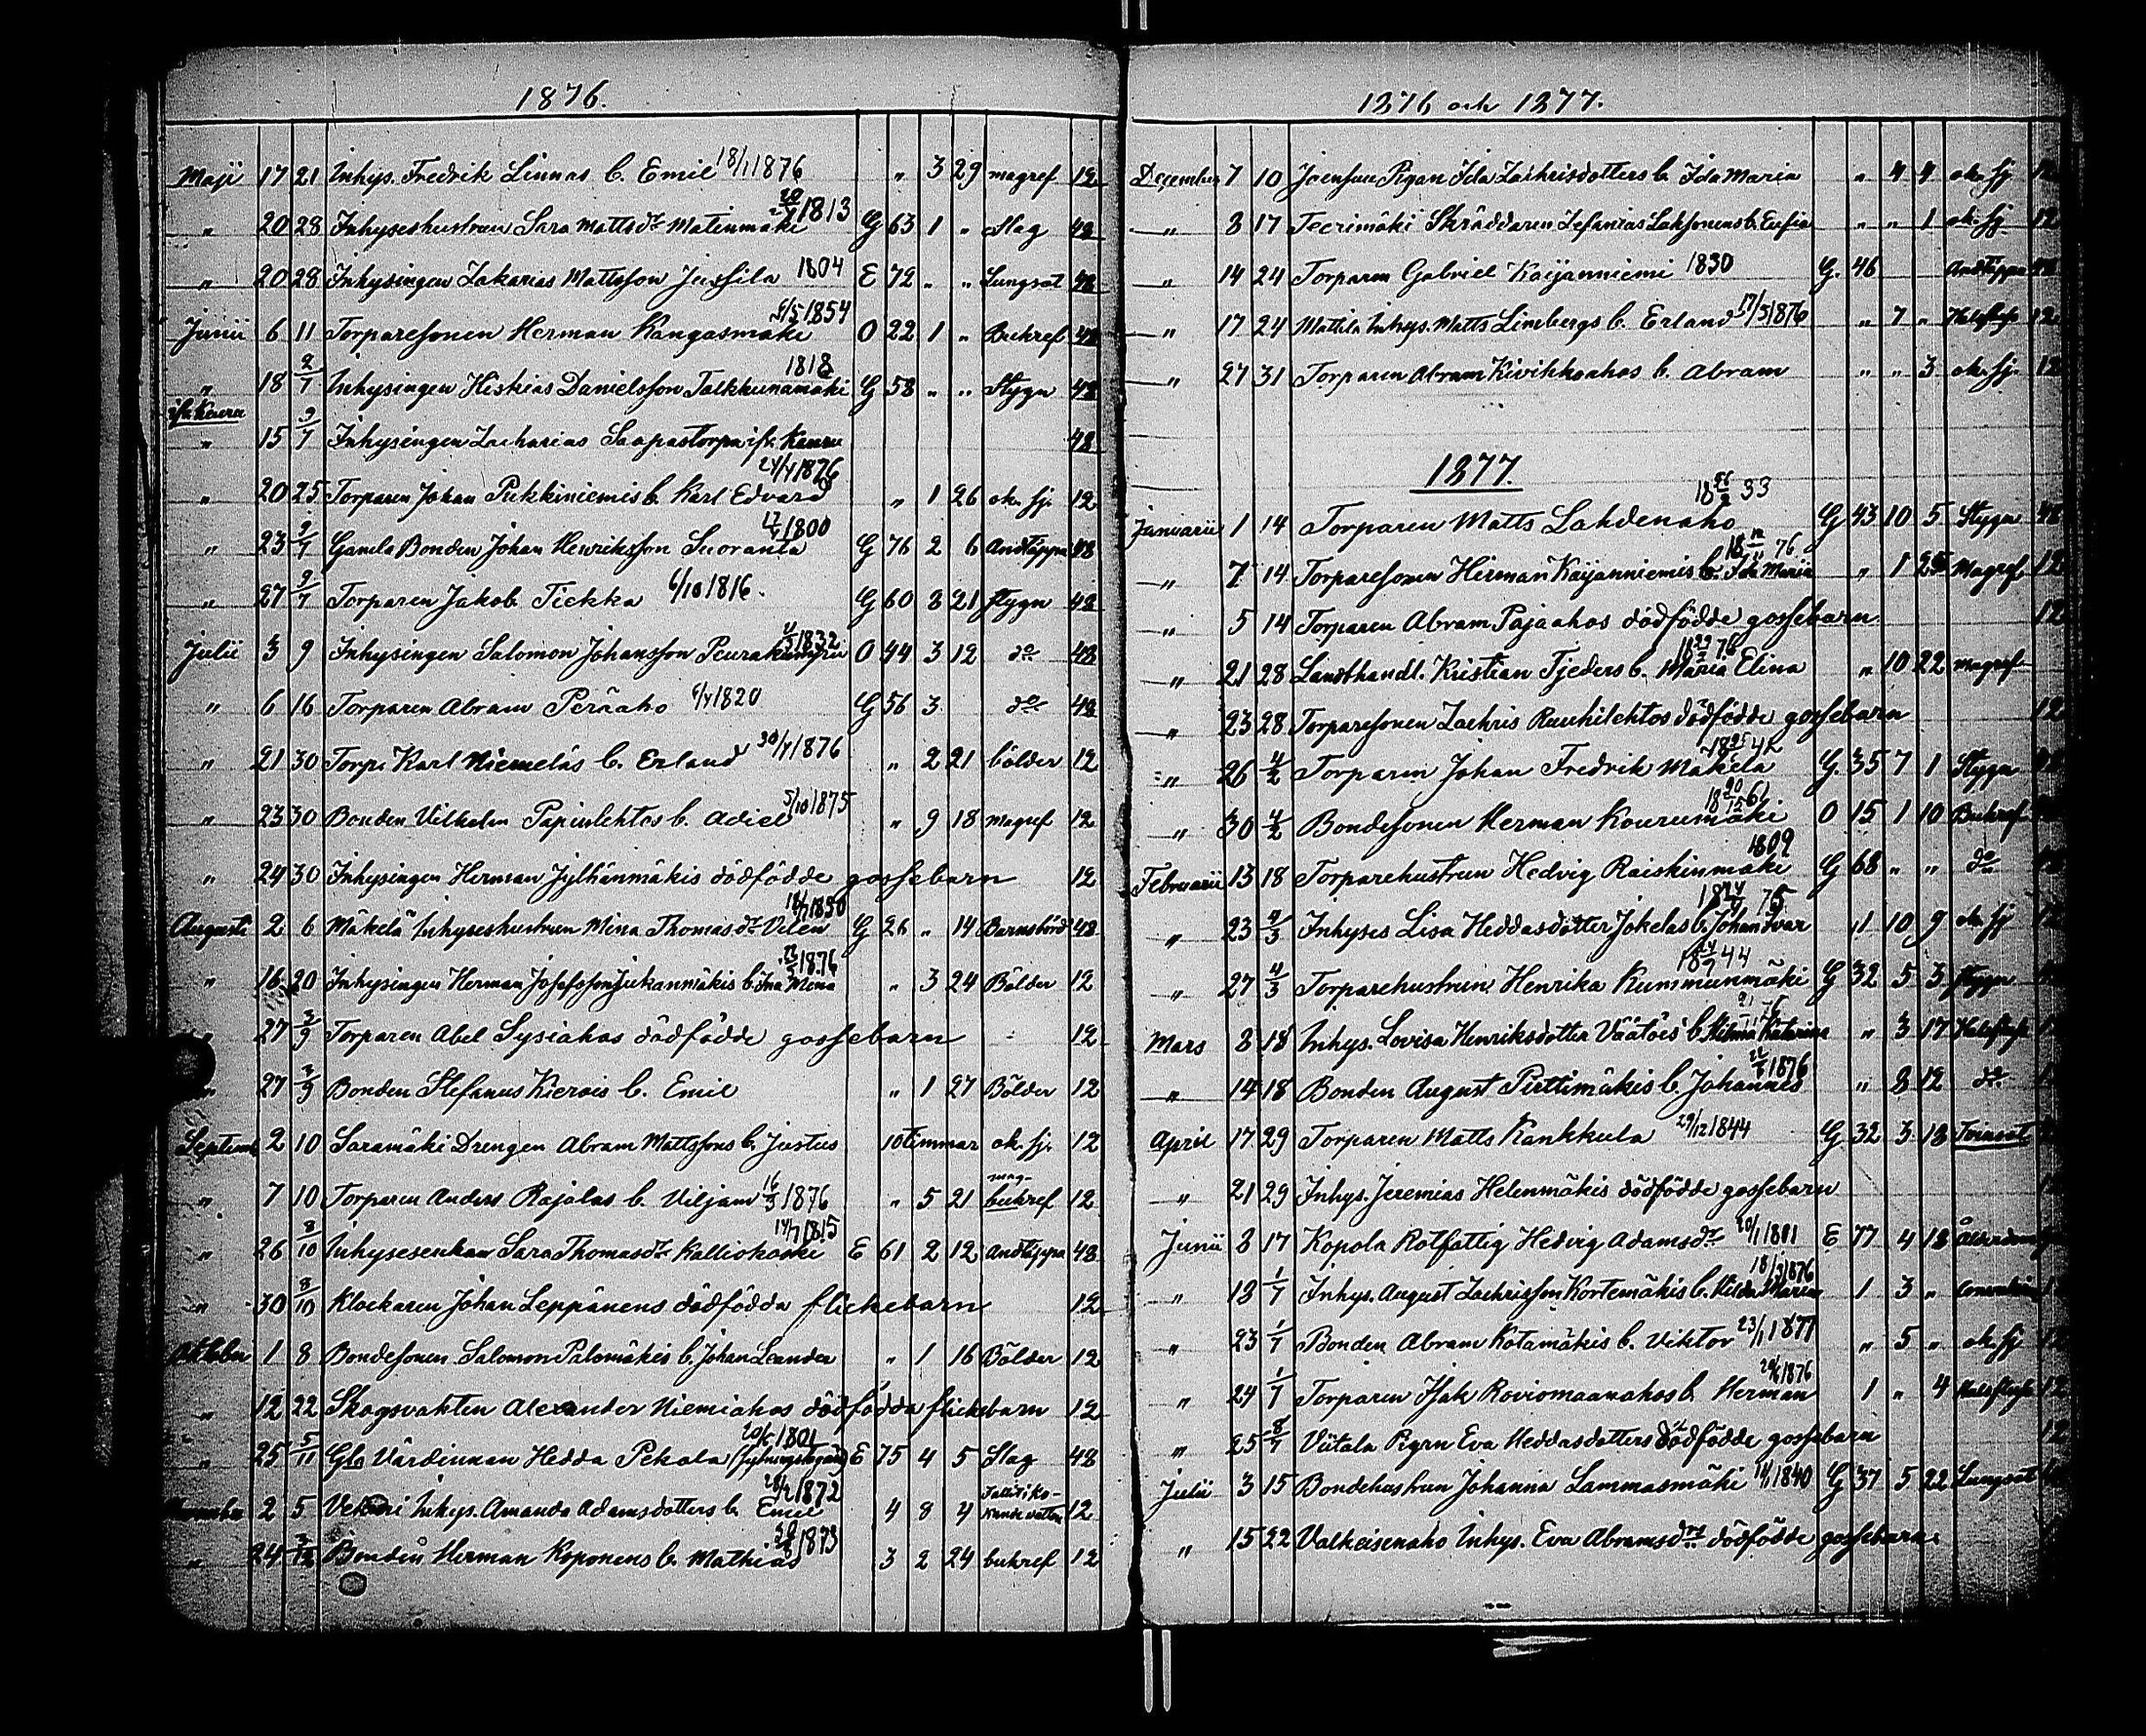 1876.
Maji 17 21 Inhys. Fredrik Linnas b. Emil 18/1 1876 " 3 29 magref 12
" 20 28 Inhyseshustrun Sara Mattsdr Matinmäki 1813 G 63 1 " Slag 48
" 20 28 Inhysingen Zakarias Mattsson Jussila 1804 E 72 " " Lungsot 48
Junii 6 11 Torparesonen Herman Kangasmäki 1854 O 22 1 " Bukref 48
" 18 2/7 Inhysingen Hiskias Danielsson Talkkunamäki 1818 G 58 " " Stygn 48
" 15 9/7 Inhysingen Zacharias Saapastorpa 48
" 20 25 Torparen Johan Pukkiniemis b. Karl Edvard 24/4 1876 " 1 26 ok. sj. 12
" 23 9/7 Gamla Bonden Johan Henriksson Suoranta 1800 G 76 2 6 Andtäppa 48
" 27 9/7 Torparen Jakob Tiekka 6/10 1816. G 60 8 21 Stygn 48
Julii 3 9 Inhysingen Salomon Johansson 1832 O 44 3 12 do 48
" 6 16 Torparen Abram Peräaho 1820 G 56 3 do 48
" 21 30 Torp. Karl Niemeläs b. Erland 30/4 1876 " 2 21 bölder 12
" 23 30 Bonden Vilhelm Papinlehtos b. Adiel 5/10 1875 " 9 18 magref 12
" 24 30 Inhysingen Herman Jylhänmäkis dödfödde gossebarn 12
Augusti 2 6 Mäkelä Inhyseshustrun Mina Thomasdr Vilen 1850 G 26 " 14 Barnsbörd 48
" 16 20 Inhysingen Herman Josefsson Jukanmäkis b. Ina Mina 1876 " 3 24 Bölder 12
" 27 3/9 Torparen Abel Sysiahos dödfödde gossebarn 12
" 27 3/9 Bonden Stefanus Kierois b. Emil " 1 27 Bölder 12
Septemb 2 10 Saramäki Drengen Abram Mattssons b. Justus 10 timmar ok. sj. 12
" 7 10 Torparen Anders Rajalas b. Viljam 16/3 1876 " 5 21 mag- bukref 12
" 26 8/10 Inhysesenkan Sara Thomasdr Kalliokoski 14/7 1815 E 61 2 12 Andtäppa 48
" 30 8/10 Klockaren Johan Leppänens dödfödda flickebarn 12
Oktober 1 8 Bondesonen Salomon Palomäkis b. Johan Leander " 1 16 Bölder 12
" 12 22 Skogsvakten Alexander Niemiahos dödfödda flickebarn 12
" 25 5/11 Gla Värdinnan Hedda Pekola 1801 E 75 4 5 Slag 48
November 2 5 Inhys. Amanda Adamsdotters b. Emil 1872 4 8 4 12
" 24 3/12 Bonden Herman Koponens b. Mathias 1873 3 2 24 bukref 12
1876 och 1877.
December 7 10 Joensuu Pigan Ida Zachrisdotters b. Ida Maria " 4 4 ok. sj 12
" 8 17 Teerimäki Skräddaren Zefanias Laksonens b. " " 1 ok. sj 12
" 14 24 Torparen Gabriel Kaijanniemi 1830 G. 46 Andtäppa 48
" 17 24 Mattila Inhys. Matts Limbergs b. Erland 17/5 1876 " 7 " Halsfluss 12
" 27 31 Torparen Abram Kivikkoahos b. Abram " " 3 ok. sj. 12
1877.
Januarii 1 14 Torparen Matts Lahdenaho 33 G 43 10 5 Stygn 48
" 7 14 Torparesonen Herman Kaijanniemis b. Ida Maria 76 " 1 25 Magref 12
" 5 14 Torparen Abram Pajaahos dödfödde gossebarn. 12
" 21 28 Landthandl. Kristian Tjeders b. Maria Elina 76 " 10 22 magref
" 23 28 Torparesonen Zachris Rauhilehtos dödfödde gossebarn 12
" 26 4/2 Torparen Johan Fredrik Mäkelä G. 35 7 1 Stygn
" 30 4/2 Bondesonen Herman Kourumäki 61 O 15 1 10 Bukref
Februarii 13 18 Torparehustrun Hedvig Raiskinmäki 1809 G 68 " " do
" 23 4/3 Inhyses Lisa Heddasdotter Jokelas b. Johan Ivar 75 1 10 9 ok. sj 12
" 27 4/3 Torparehustrun Henrika Kummunmäki 44 G 32 5 3 Stygn
Mars 8 18 Inhys. Lovisa Henriksdotter Väätöis b. Katarina " 3 17 Halsfluss
" 14 18 Bonden August Pirttimäkis b. Johannes 1876 " 8 12 do
April 17 29 Torparen Matts Kankkula 29/12 1844 G 32 3 18
" 21 29 Inhys. Jeremias Helenmäkis dödfödde gossebarn
Junii 3 17 Kopola Rotfattig Hedvig Adamsdr 20/1 1801 E 77 4 18
" 18 1/7 Inhys. August Zachrisson Kortemäkis b. Hilda Maria 1876 1 3 "
" 23 1/7 Bonden Abram Kotamäkis b. Viktor 23/1 1877 " 5 " ok. sj 12
" 24 1/7 Torparen Isak Roviomaanahos b. Herman 1876 1 " 4 Halsfluss 12
" 25 8/7 Viitala Pigan Eva Heddasdotters dödfödde gossebarn 12
Julii 3 15 Bondehustrun Johanna Lammasmäki 1840 G 37 5 22 Lungsot
" 15 22 Valkeisenaho Inhys. Eva Abramsdrs dödfödde gossebarn.